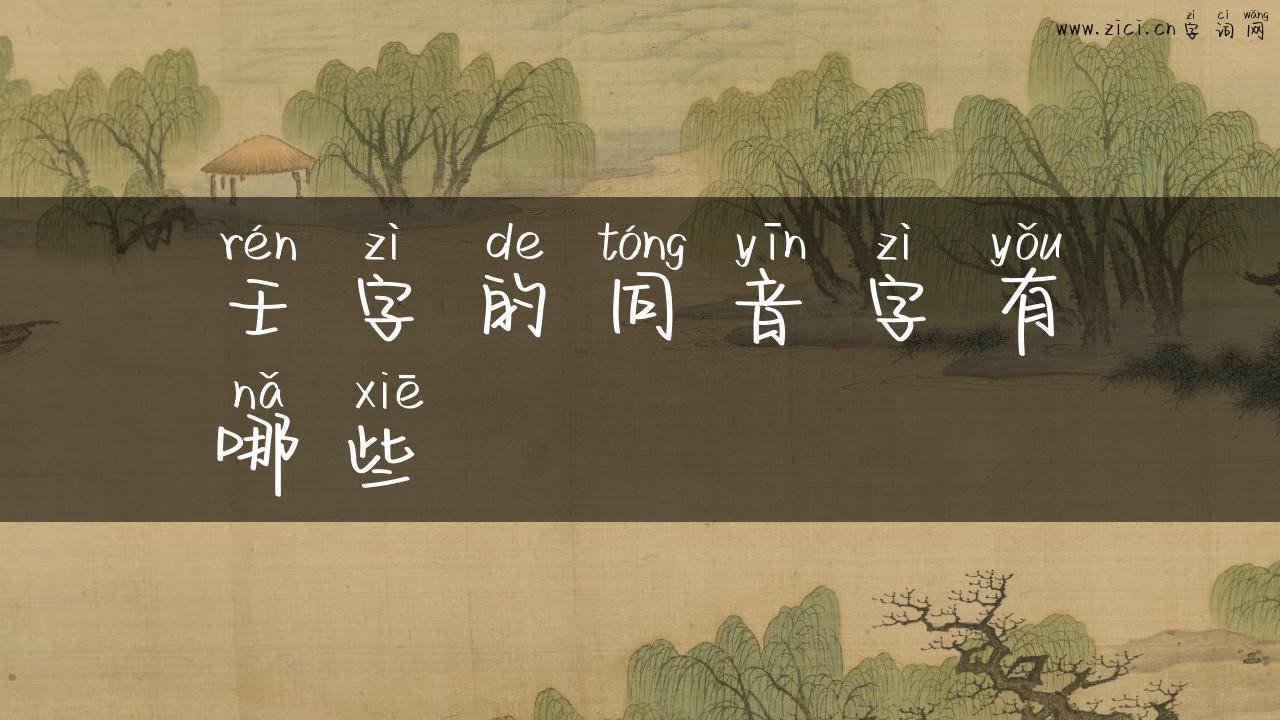 zì cí wǎng
www.zici.cn 字 词 网
rén zì de tóng yīn zì yǒu
壬 字 的 同 音 字 有
nǎ xiē
哪 些